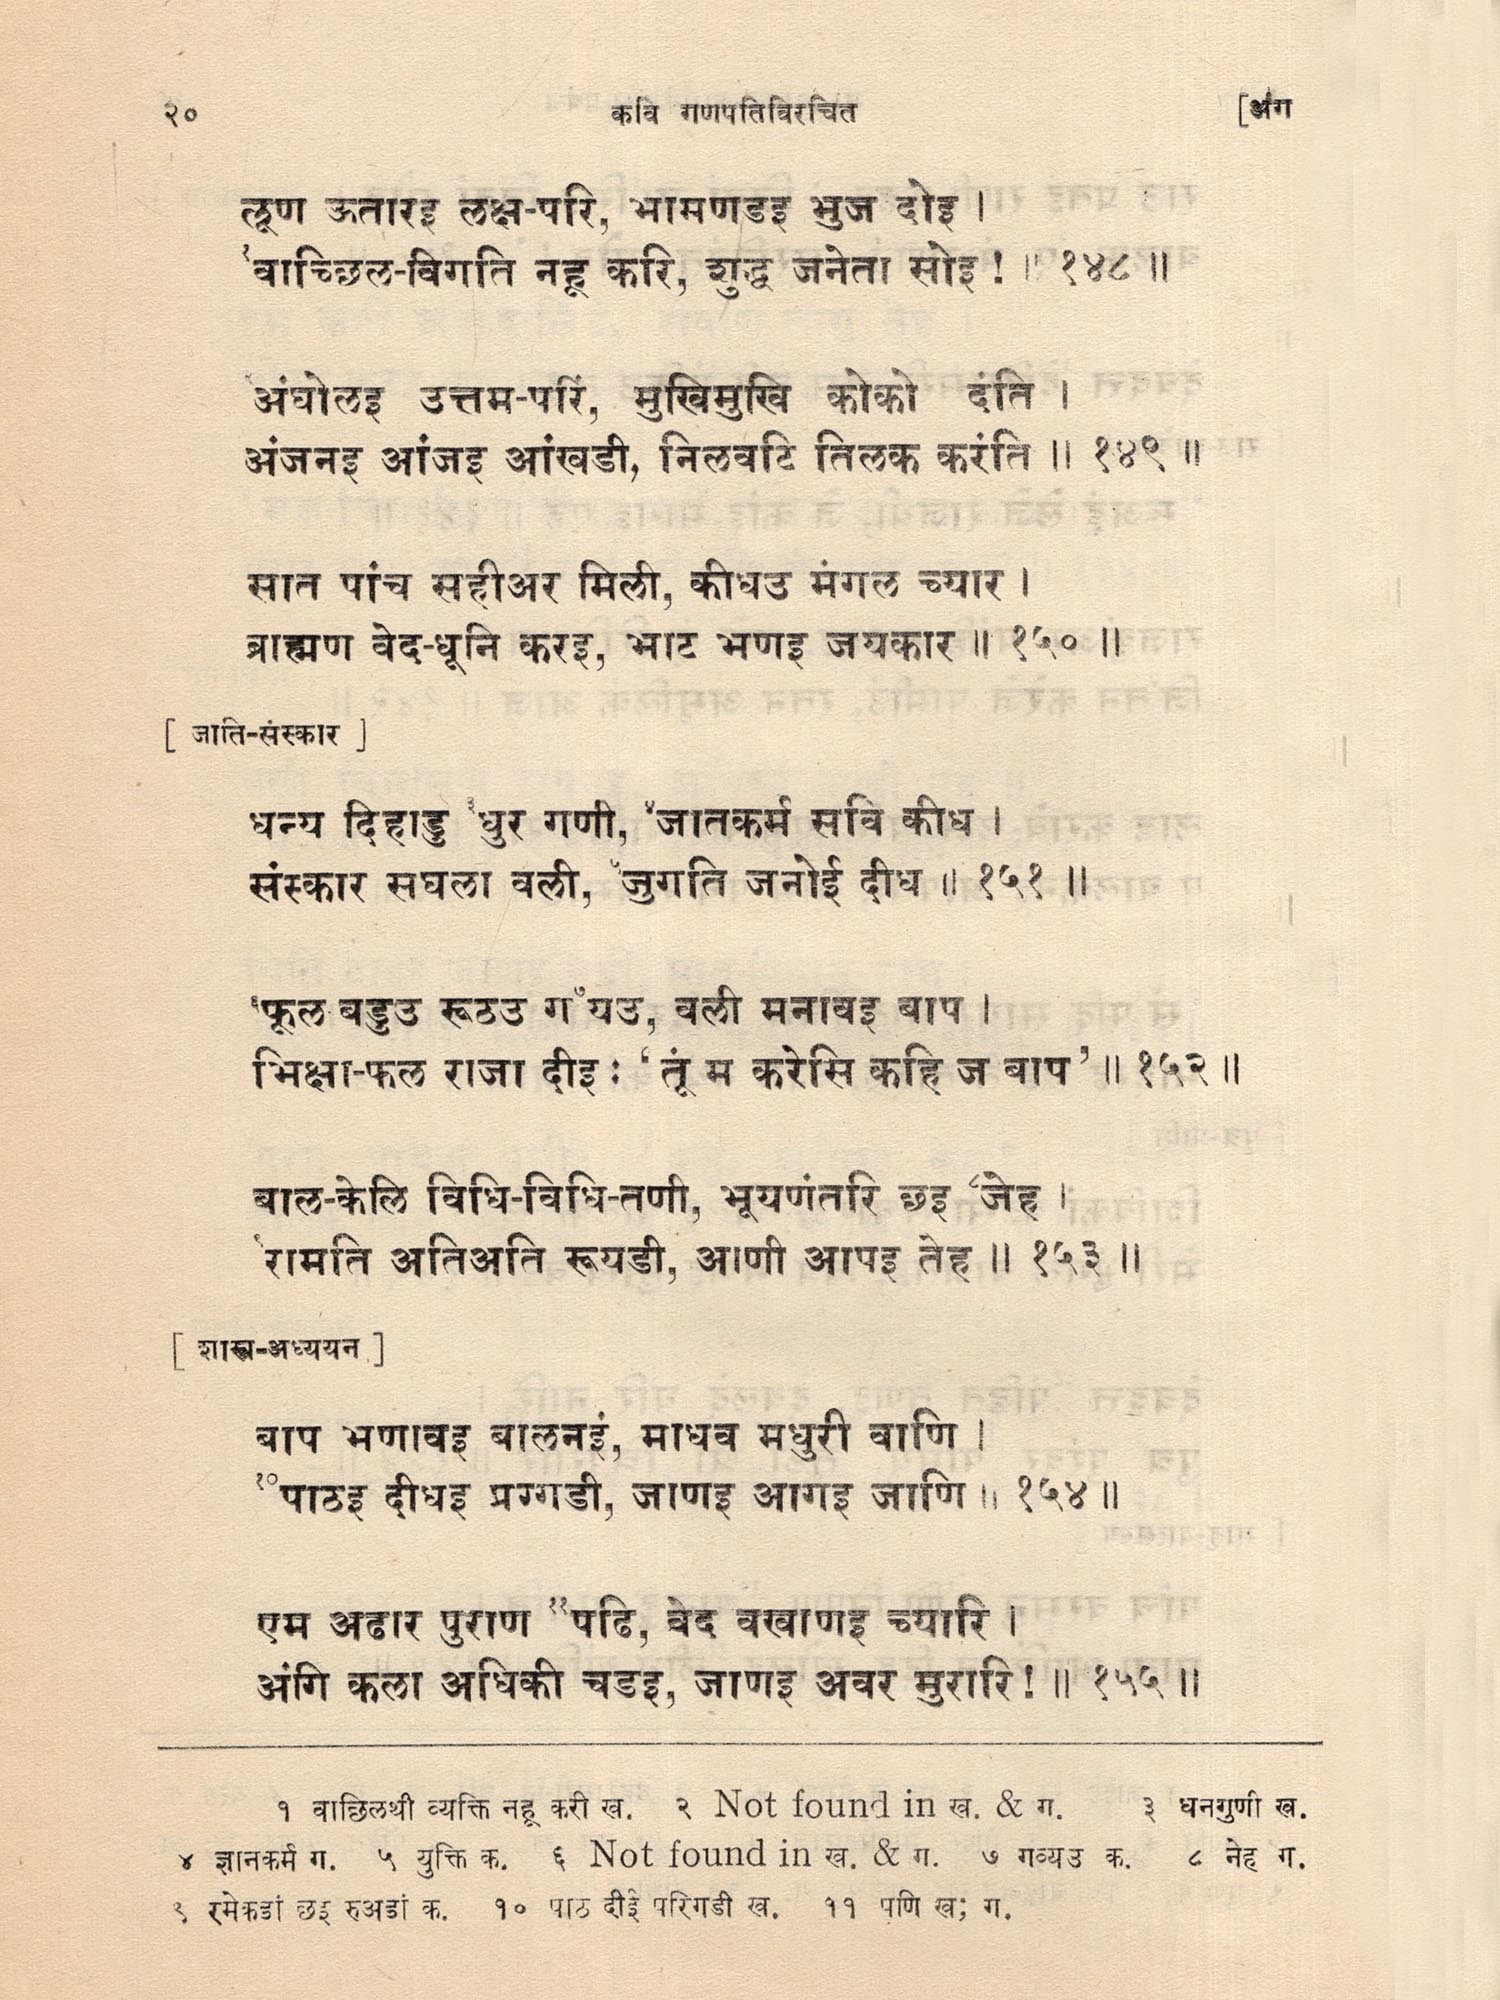 २० कवि गणपतिविरचित [अंग
लूण ऊतारइ लक्ष-परि, भामणडइ भुज दोइ ।
१वाच्छिल-विगति नहू करि, शुद्ध जनेता सोइ ! ॥ १४८ ॥
२अंघोलइ उत्तम-परिं, मुखिमुखि कोको दंति ।
अंजनइ आंजइ आंखडी, निलवटि तिलक करंति ॥ १४९ ॥
सात पांच सहीअर मिली, कीधउ मंगल च्यार ।
ब्राह्मण वेद-धूनि करइ, भाट भणइ जयकार ॥ १५० ॥
[ जाति-संस्कार ]
धन्य दिहाड्ड ३धुर गणी, ४जातकर्म सवि कीध ।
संस्कार सघला वली, ५जुगति जनोई दीध ॥ १५१ ॥
६फूल बड्डुउ रूठउ ग७यउ, वली मनावइ बाप ।
भिक्षा-फल राजा दीइः ‘तूं म करेसि कहि ज बाप’ ॥ १५२ ॥
बाल-केलि विधि-विधि-तणी, भूयणंतरि छइ ८जेह ।
९रामति अतिअति रूयडी, आणी आपइ तेह ॥ १५३ ॥
[ शास्त्र-अध्ययन ]
बाप भणावइ बालनइं, माधव मधुरी वाणि ।
१०पाठइ दीधइ प्रग्गडी, जाणइ आगइ जाणि ॥ १५४ ॥
एम अढार पुराण ११पढि, वेद वखाणइ च्यारि ।
अंगि कला अधिकी चडइ, जाणइ अवर मुरारि! ॥ १५५ ॥
१ वाछिलथी व्यक्ति नहू करी ख. २ Not found in ख. & ग. ३ धनगुणी ख.
४ ज्ञानकर्म ग. ५ युक्ति क. ६ Not found in ख. & ग. ७ गव्यउ क. ८ नेह ग.
९ रमेकडां छइ रुअडां क. १० पाठ दीईं परिगडी ख. ११ पणि ख; ग.